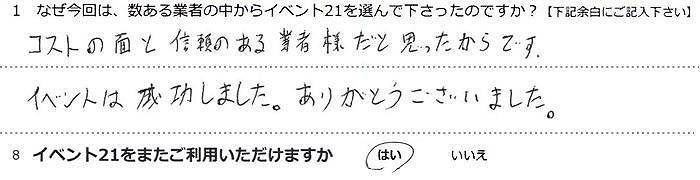 1 なぜ今回は、数ある業者の中からイベント21を選んで下さったのですか？【下記余白にご記入下さい】
コストの面と信頼のある業者様だと思ったからです.
イベントは成功しました。ありがとうございました。
8 イベント21をまたご利用いただけますか はい いいえ